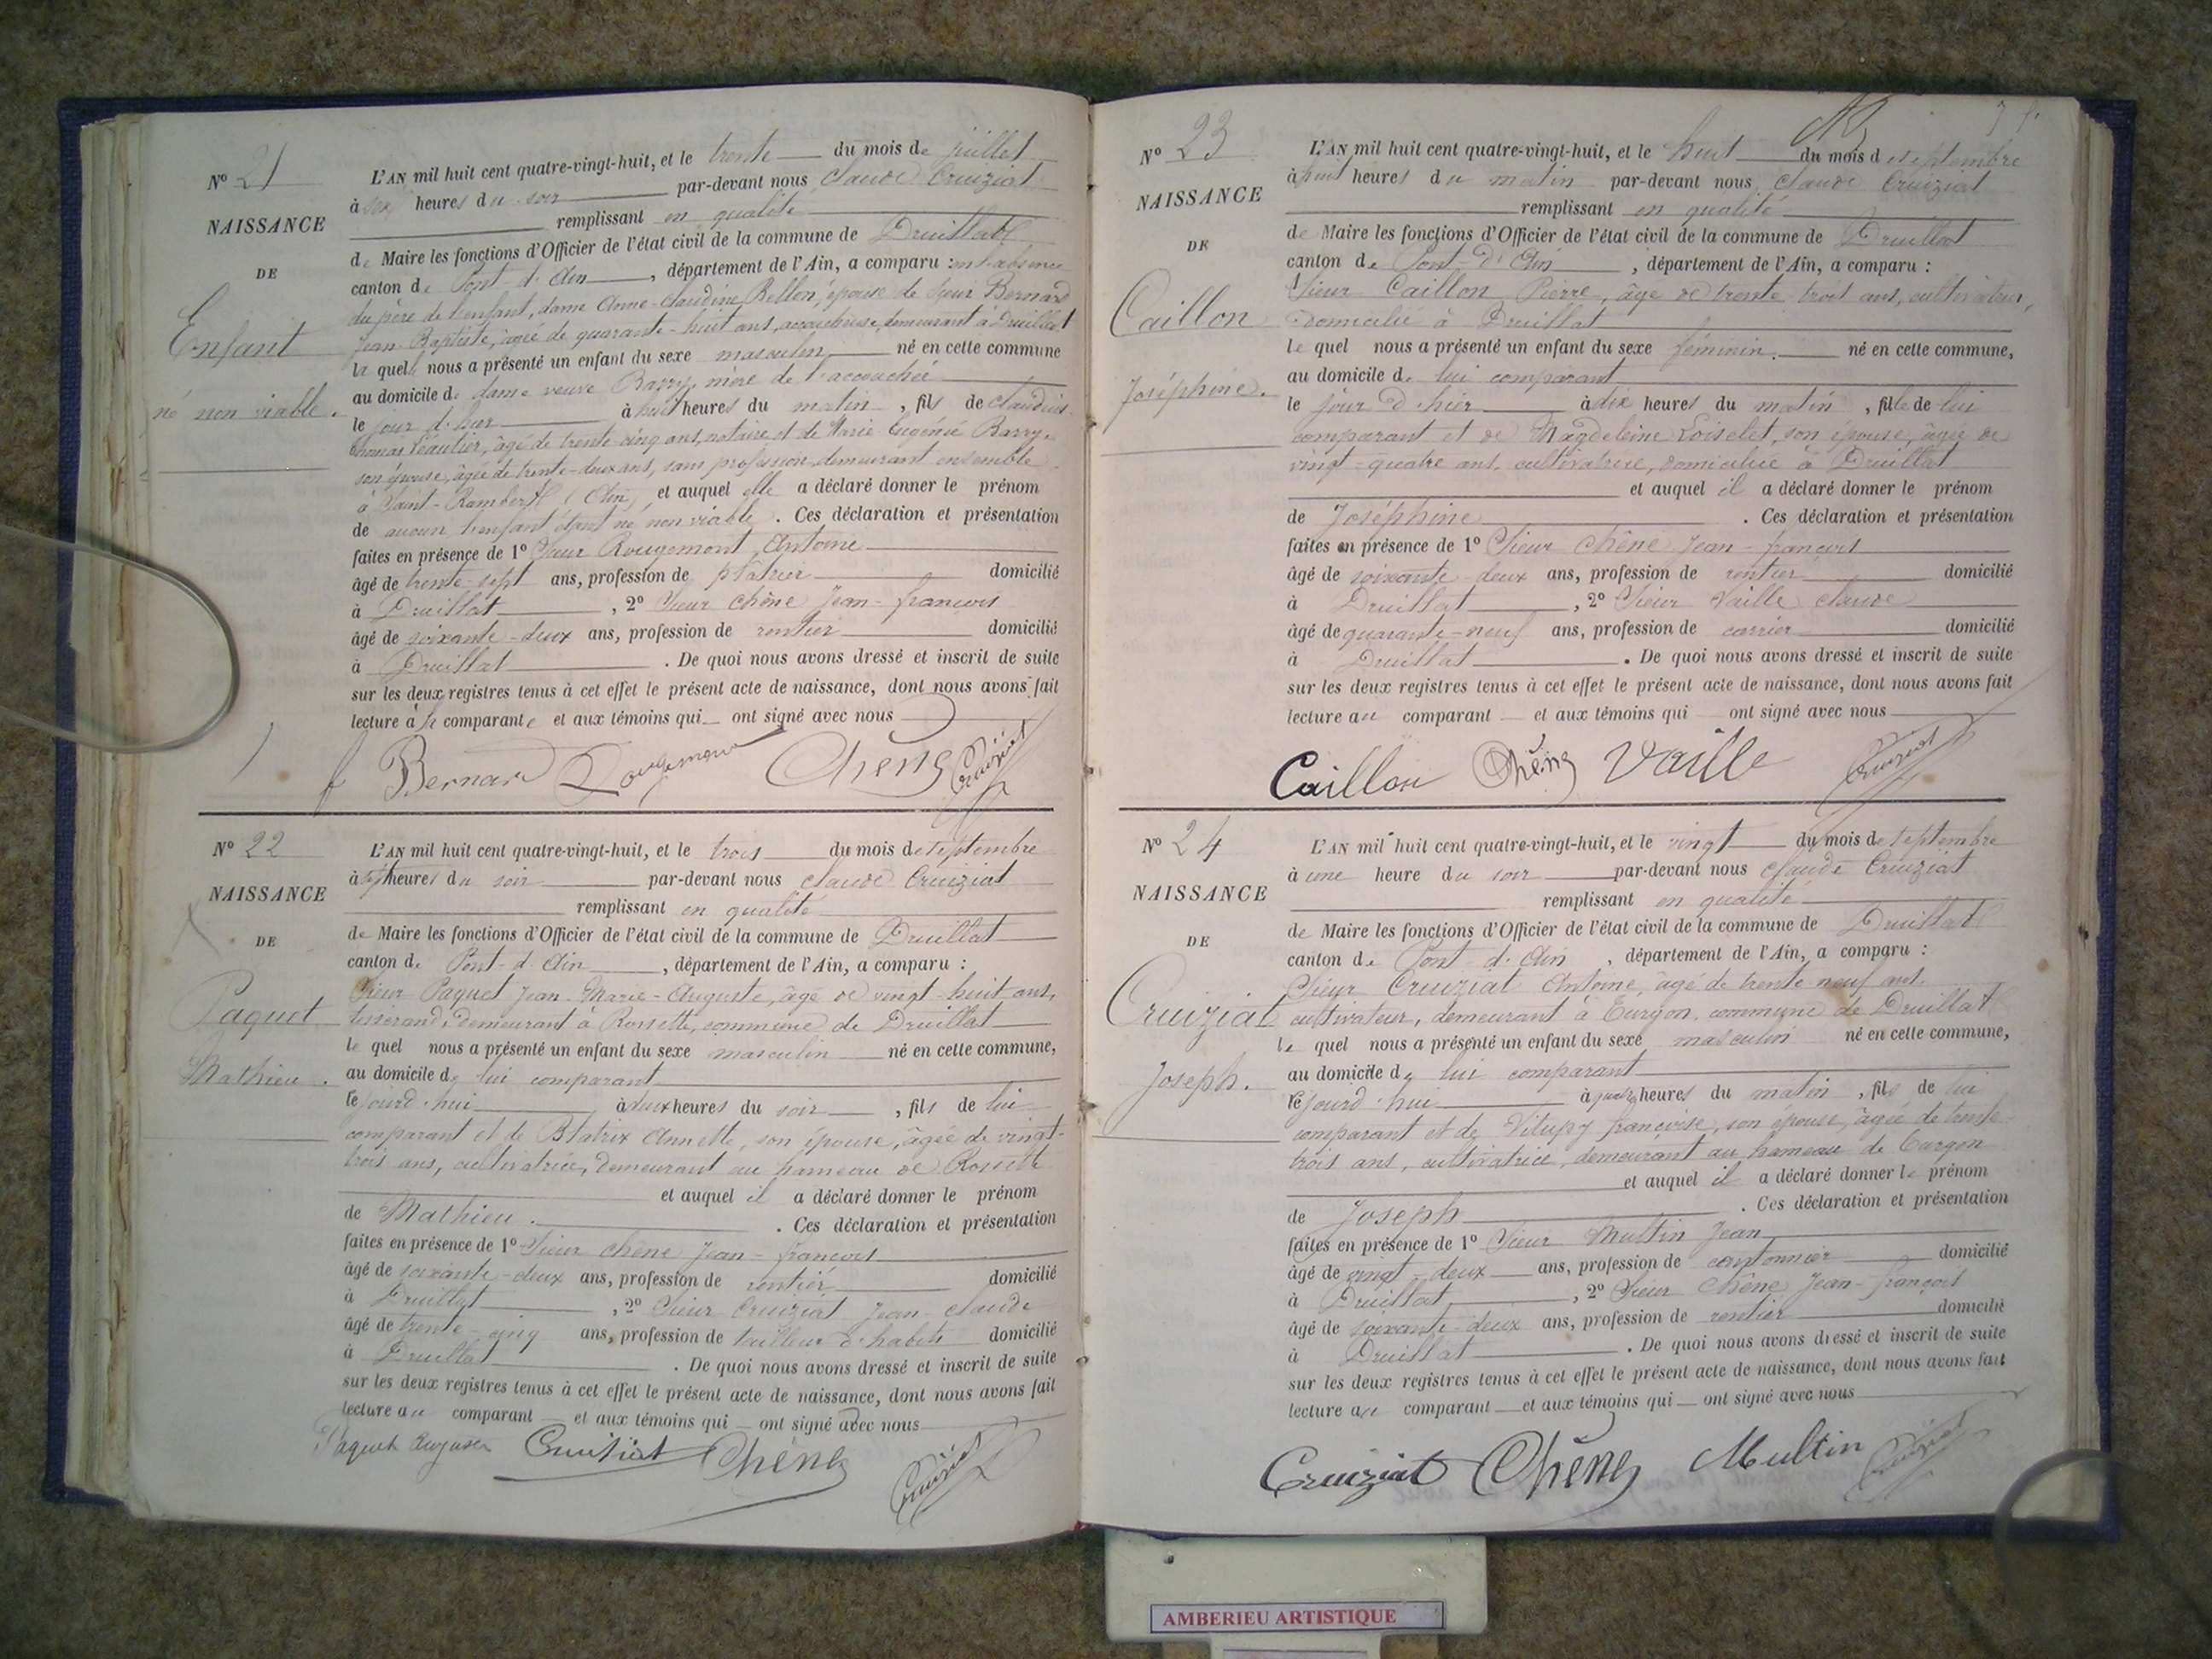 N° 21
NAISSANCE
DE
Enfant
né non viable.
L'AN mil huit cent quatre-vingt-huit, et le trente du mois de juillet
à six heures du soir par-devant nous Claude Cruiziat
remplissant en qualité
de Maire les fonctions d'Officier de l'état civil de la commune de Druillat
canton de Pont-d'Ain, département de l'Ain, a comparu : en l'absence
du père de l'enfant, dame Anne-Claudine Bellon, épouse de sieur Bernard
Jean-Baptiste, âgée de quarante-huit ans, accoucheuse, demeurant à Druillat
la quelle nous a présenté un enfant du sexe masculin né en cette commune
au domicile de dame veuve Barry, mère de l'accouchée
le jour d'hier à huit heures du matin, fils de Claudius
Thomas, âgé de trente cinq ans, notaire et de Marie Eugénie Barry,
son épouse, âgée de trente-deux ans, sans profession, demeurant ensemble
à Saint-Rambert (Ain) et auquel elle a déclaré donner le prénom
de aucun l'enfant étant né non viable. Ces déclaration et présentation
faites en présence de 1° Sieur Rougemont, Antoine
âgé de trente-sept ans, profession de plâtrier domicilié
à Druillat, 2° Sieur Chêne Jean-françois
âgé de soixante-deux ans, profession de rentier domicilié
à Druillat. De quoi nous avons dressé et inscrit de suite
sur les deux registres tenus à cet effet le présent acte de naissance, dont nous avons fait
lecture à la comparante et aux témoins qui ont signé avec nous
f Bernard Rougemont Chêne Cruiziat
N° 22
NAISSANCE
DE
Paquet
Mathieu.
L'AN mil huit cent quatre-vingt-huit, et le trois du mois de septembre
à sept heures du soir par-devant nous Claude Cruiziat
remplissant en qualité
de Maire les fonctions d'Officier de l'état civil de la commune de Druillat
canton de Pont-d'Ain, département de l'Ain, a comparu :
Sieur Paquet Jean-Marie-Auguste, âgé de vingt-huit ans,
tisserand, demeurant à Rossette, commune de Druillat
le quel nous a présenté un enfant du sexe masculin né en cette commune,
au domicile de lui comparant
cejourd'hui à deux heures du soir, fils de lui
comparant et de Blatrix Annette, son épouse, âgée de vingt-
trois ans, cultivatrice, demeurant au hameau de Rossette
et auquel il a déclaré donner le prénom
de Mathieu. Ces déclaration et présentation
faites en présence de 1° Sieur Chêne Jean-françois
âgé de soixante-deux ans, profession de rentier domicilié
à Druillat, 2° Sieur Cruiziat Jean-Claude
âgé de trente-cinq ans, profession de tailleur d'habits domicilié
à Druillat. De quoi nous avons dressé et inscrit de suite
sur les deux registres tenus à cet effet le présent acte de naissance, dont nous avons fait
lecture au comparant et aux témoins qui ont signé avec nous
Paquet Auguste Cruiziat Chêne Cruiziat
N° 23
NAISSANCE
DE
Caillon
Joséphine.
L'AN mil huit cent quatre-vingt-huit, et le huit du mois de septembre
à huit heures du matin par-devant nous Claude Cruiziat
remplissant en qualité
de Maire les fonctions d'Officier de l'état civil de la commune de Druillat
canton de Pont-d'Ain, département de l'Ain, a comparu :
Sieur Caillon Pierre, âgé de trente-trois ans, cultivateur,
domicilié à Druillat
le quel nous a présenté un enfant du sexe féminin né en cette commune,
au domicile de lui comparant
le jour d'hier à dix heures du matin, fille de lui
comparant et de Magdeleine Loiselet, son épouse, âgée de
vingt-quatre ans, cultivatrice, domiciliée à Druillat
et auquel il a déclaré donner le prénom
de Joséphine. Ces déclaration et présentation
faites en présence de 1° Sieur Chêne Jean-françois
âgé de soixante-deux ans, profession de rentier domicilié
à Druillat, 2° Sieur Vaille Claude
âgé de quarante-neuf ans, profession de carrier domicilié
à Druillat. De quoi nous avons dressé et inscrit de suite
sur les deux registres tenus à cet effet le présent acte de naissance, dont nous avons fait
lecture au comparant et aux témoins qui ont signé avec nous
Caillon Chêne Vaille Cruiziat
N° 24
NAISSANCE
DE
Cruiziat
Joseph.
L'AN mil huit cent quatre-vingt-huit, et le vingt du mois de septembre
à une heure du soir par-devant nous Claude Cruiziat
remplissant en qualité
de Maire les fonctions d'Officier de l'état civil de la commune de Druillat
canton de Pont-d'Ain, département de l'Ain, a comparu :
Sieur Cruiziat Antoine, âgé de trente neuf ans,
cultivateur, demeurant à Turgon, commune de Druillat
le quel nous a présenté un enfant du sexe masculin né en cette commune,
au domicile de lui comparant
cejourd'hui à quatre heures du matin, fils de lui
comparant et de Vitupy françoise, son épouse, âgée de trente-
trois ans, cultivatrice, demeurant au hameau de Turgon
et auquel il a déclaré donner le prénom
de Joseph. Ces déclaration et présentation
faites en présence de 1° Sieur Multin Jean
âgé de vingt-deux ans, profession de cantonnier domicilié
à Druillat, 2° Sieur Chêne Jean-françois
âgé de soixante-deux ans, profession de rentier domicilié
à Druillat. De quoi nous avons dressé et inscrit de suite
sur les deux registres tenus à cet effet le présent acte de naissance, dont nous avons fait
lecture au comparant et aux témoins qui ont signé avec nous
Cruiziat Chêne Multin Cruiziat
AMBERIEU ARTISTIQUE